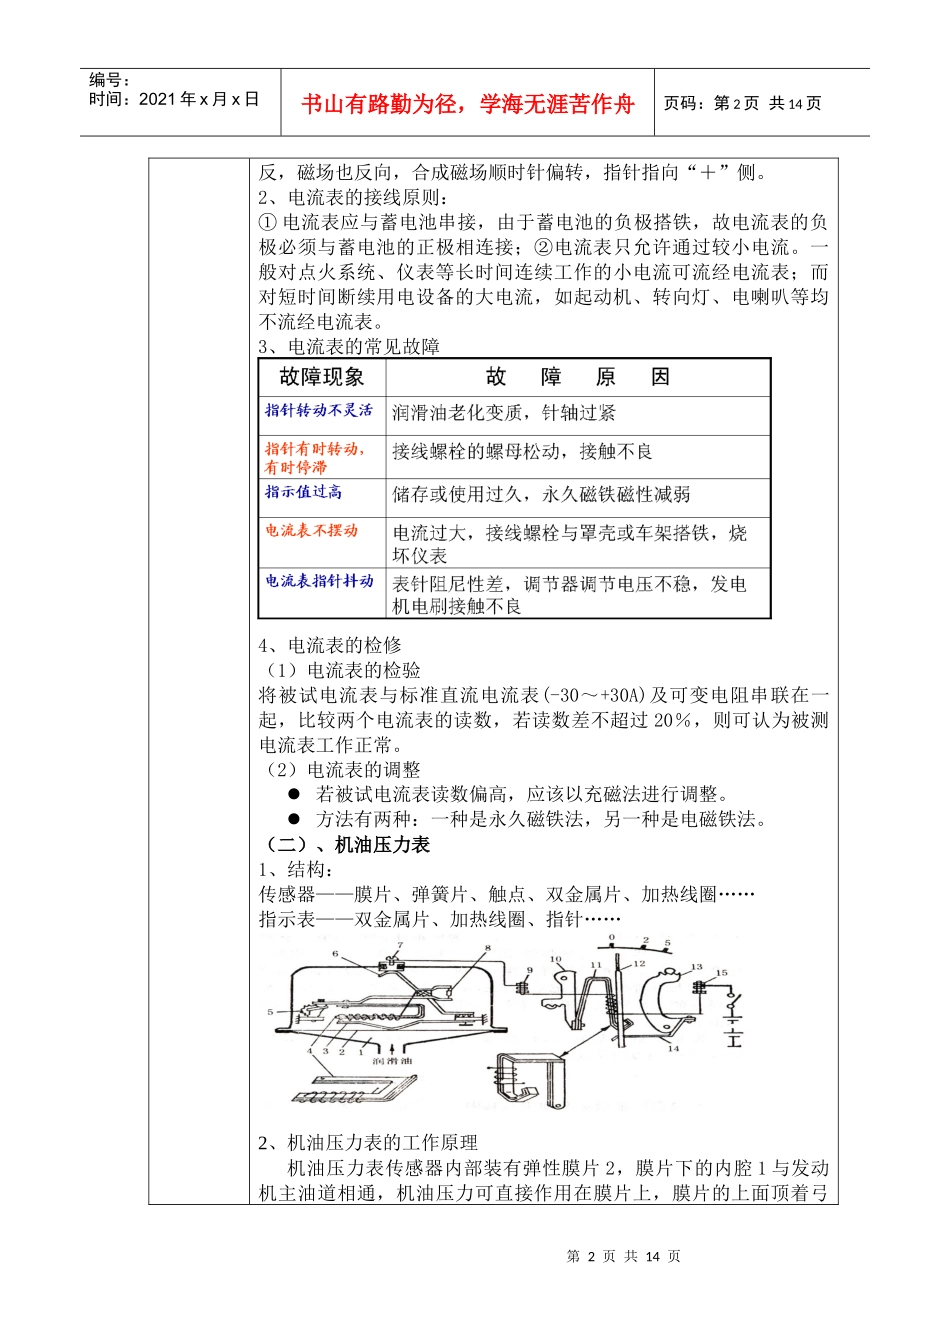 编号：
时间：2021年x月x日
书山有路勤为径，学海无涯苦作舟
页码：第2页 共14页
反，磁场也反向，合成磁场顺时针偏转，指针指向“＋”侧。
2、电流表的接线原则：
① 电流表应与蓄电池串接，由于蓄电池的负极搭铁，故电流表的负
极必须与蓄电池的正极相连接；②电流表只允许通过较小电流。一
般对点火系统、仪表等长时间连续工作的小电流可流经电流表；而
对短时间断续用电设备的大电流，如起动机、转向灯、电喇叭等均
不流经电流表。
3、电流表的常见故障
故障现象 故 障 原 因
指针转动不灵活 润滑油老化变质，针轴过紧
指针有时转动，
有时停滞
接线螺栓的螺母松动，接触不良
指示值过高 储存或使用过久，永久磁铁磁性减弱
电流表不摆动 电流过大，接线螺栓与罩壳或车架搭铁，烧
坏仪表
电流表指针抖动 表针阻尼性差，调节器调节电压不稳，发电
机电刷接触不良
4、电流表的检修
（1）电流表的检验
将被试电流表与标准直流电流表(-30～+30A)及可变电阻串联在一
起，比较两个电流表的读数，若读数差不超过 20％，则可认为被测
电流表工作正常。
（2）电流表的调整
● 若被试电流表读数偏高，应该以充磁法进行调整。
● 方法有两种：一种是永久磁铁法，另一种是电磁铁法。
（二）、机油压力表
1、结构：
传感器——膜片、弹簧片、触点、双金属片、加热线圈……
指示表——双金属片、加热线圈、指针……
0 2 5
6 7 8 9 10 11 12 13 15
5
4 3 2 1 润滑油 14
2、机油压力表的工作原理
机油压力表传感器内部装有弹性膜片 2，膜片下的内腔 1 与发动
机主油道相通，机油压力可直接作用在膜片上，膜片的上面顶着弓
第 2 页 共 14 页